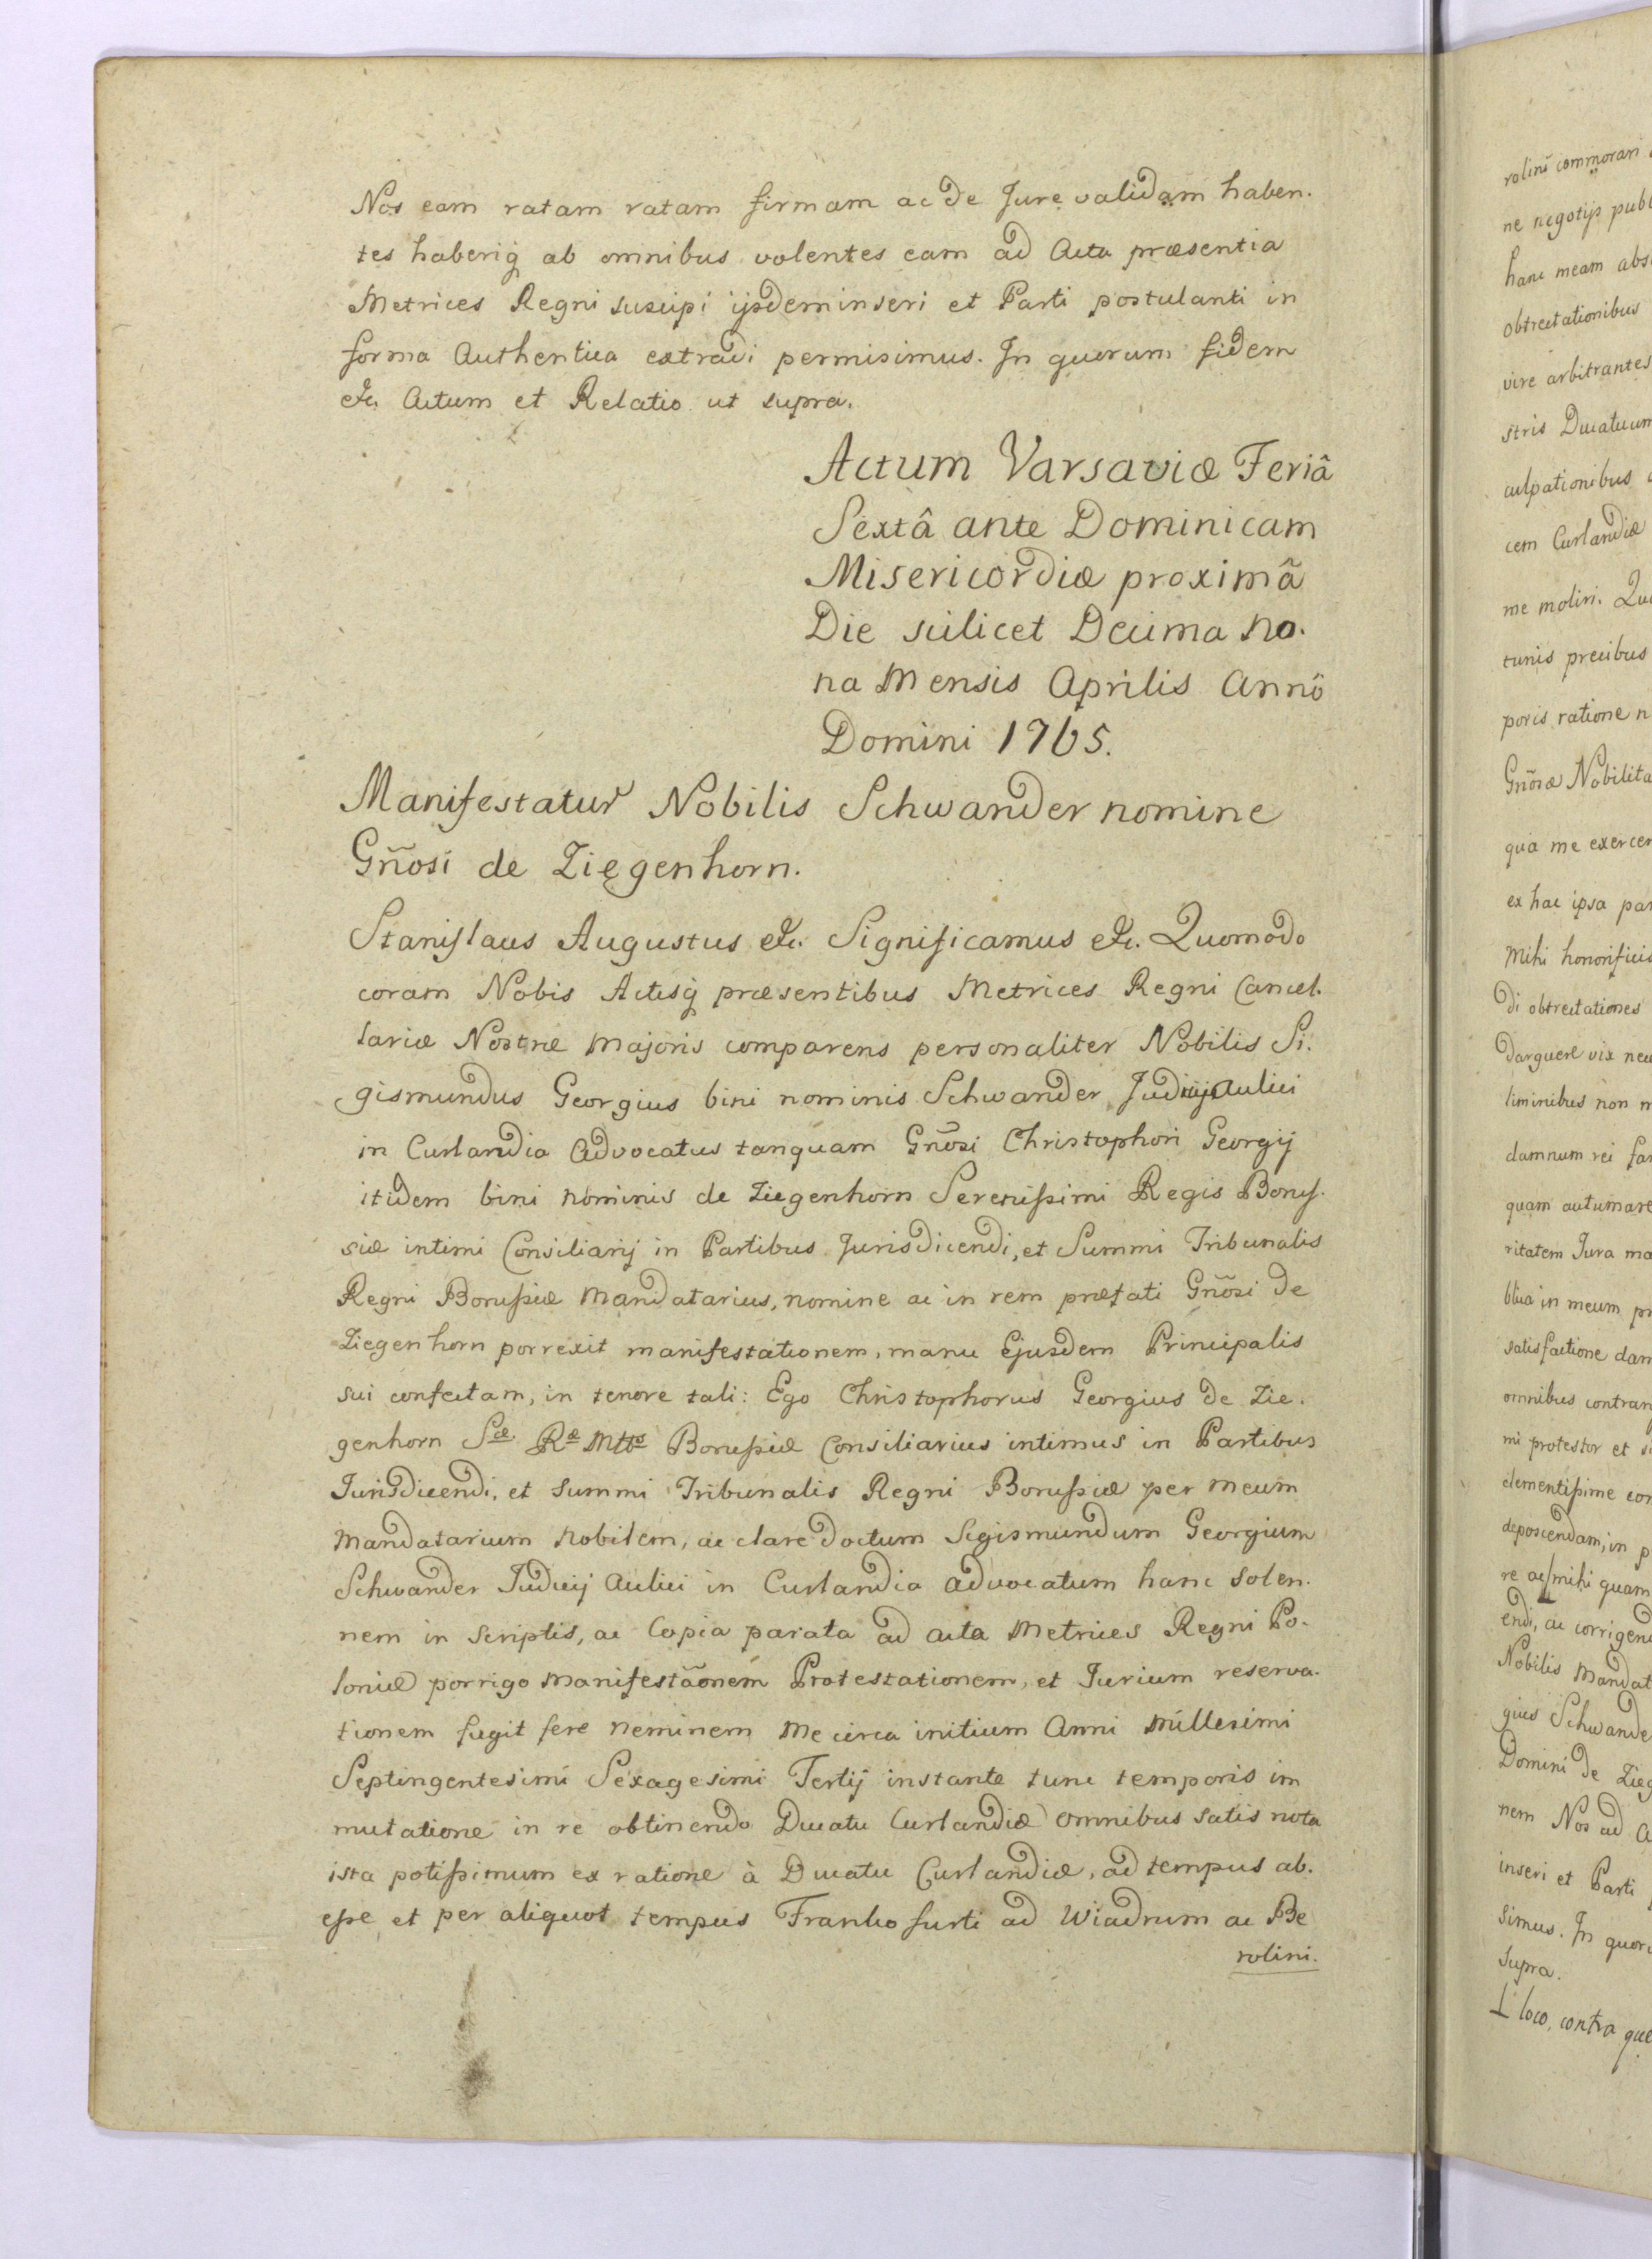 Nos eam ratam ratam firmam ac de Jure validam haben.
tes haberiq ab omnibus volentes eam ad Acta præsentia
Metrices Regni suscipi ijsdem inseri et Parti postulanti in
forma Authentica extradi permisimus. In quorum fidem
etc. Actum et Relatio ut supra.
Actum Varsaviæ Feriâ
Sextâ ante Dominicam
Misericordiæ proximâ
Die scilicet Decima no.
na Mensis Aprilis Annô
Domini 1765.
Manifestatur Nobilis Schwander nomine
Gñosi de Ziegenhorn.
Stanislaus Augustus etc. Significamus etc. Quomodo
coram Nobis Actisq præsentibus Metrices Regni Cancel.
lariæ Nostræ Majoris comparens personaliter Nobilis Si.
gismundus Georgius bini nominis Schwander Judicij Aulici
in Curlandia Advocatus tanquam Gñosi Christophori Georgij
itidem bini nominis de Ziegenhorn Serenissimi Regis Borus.
siæ intimi Consiliarij in Partibus Jurisdicendi, et Summi Tribunalis
Regni Borussiæ Mandatarius, nomine ac in rem præfati Gñosi de
Ziegenhorn porrexit manifestationem, manu Ejusdem Principalis
sui confectam, in tenore tali: Ego Christophorus Georgius de Zie.
genhorn Sæ Ræ Mttis Borussiæ Consiliarius intimus in Partibus
Jurisdicendi, et Summi Tribunalis Regni Borussiæ per meum
Mandatarium Nobilem, ac clare doctum Sigismundum Georgium
Schwander Judicij Aulici in Curlandia advocatum hanc solen.
nem in Scriptis, ac Copia parata ad acta Metrices Regni Po.
loniæ porrigo Manifestãonem Protestationem, et Jurium reserva.
tionem fugit fere neminem me circa initium Anni Millesimi
Septingentesimi Sexagesimi Tertij instante tunc temporis im
mutatione in re obtinendo Ducatu Curlandiæ omnibus satis nota
ista potissimum ex ratione à Ducatu Curlandiæ, ad tempus ab.
esse, et per aliquot tempus Francofurti ad Wiadrum ac Be
rolini.
rolini commorari
ne negotijs publ
hanc meam abs
obtrectationibus
vire arbitrantes
stris Ducatuum
culpationibus
cem Curlandiæ
me moliri. Qu
tunis precibus
poris ratione n
Gñosæ Nobilita
qua me exercer
ex hac ipsa par
Mihi honorificis
di obtrectationes
darguere vix neu
liminibus non m
damnum rei fam
quam autumare
ritatem Jura ma
blica in meum pr
satisfactione dam
omnibus contrar
mi protestor et s
clementissime con
deposcendam, in p
re ac mihi quam
endi, ac corrigend
Nobilis Mandat
gius Schwande
Domini de Zieg
nem Nos ad A
inseri et Parti
simus. In quoru
Supra.
loco, contra que